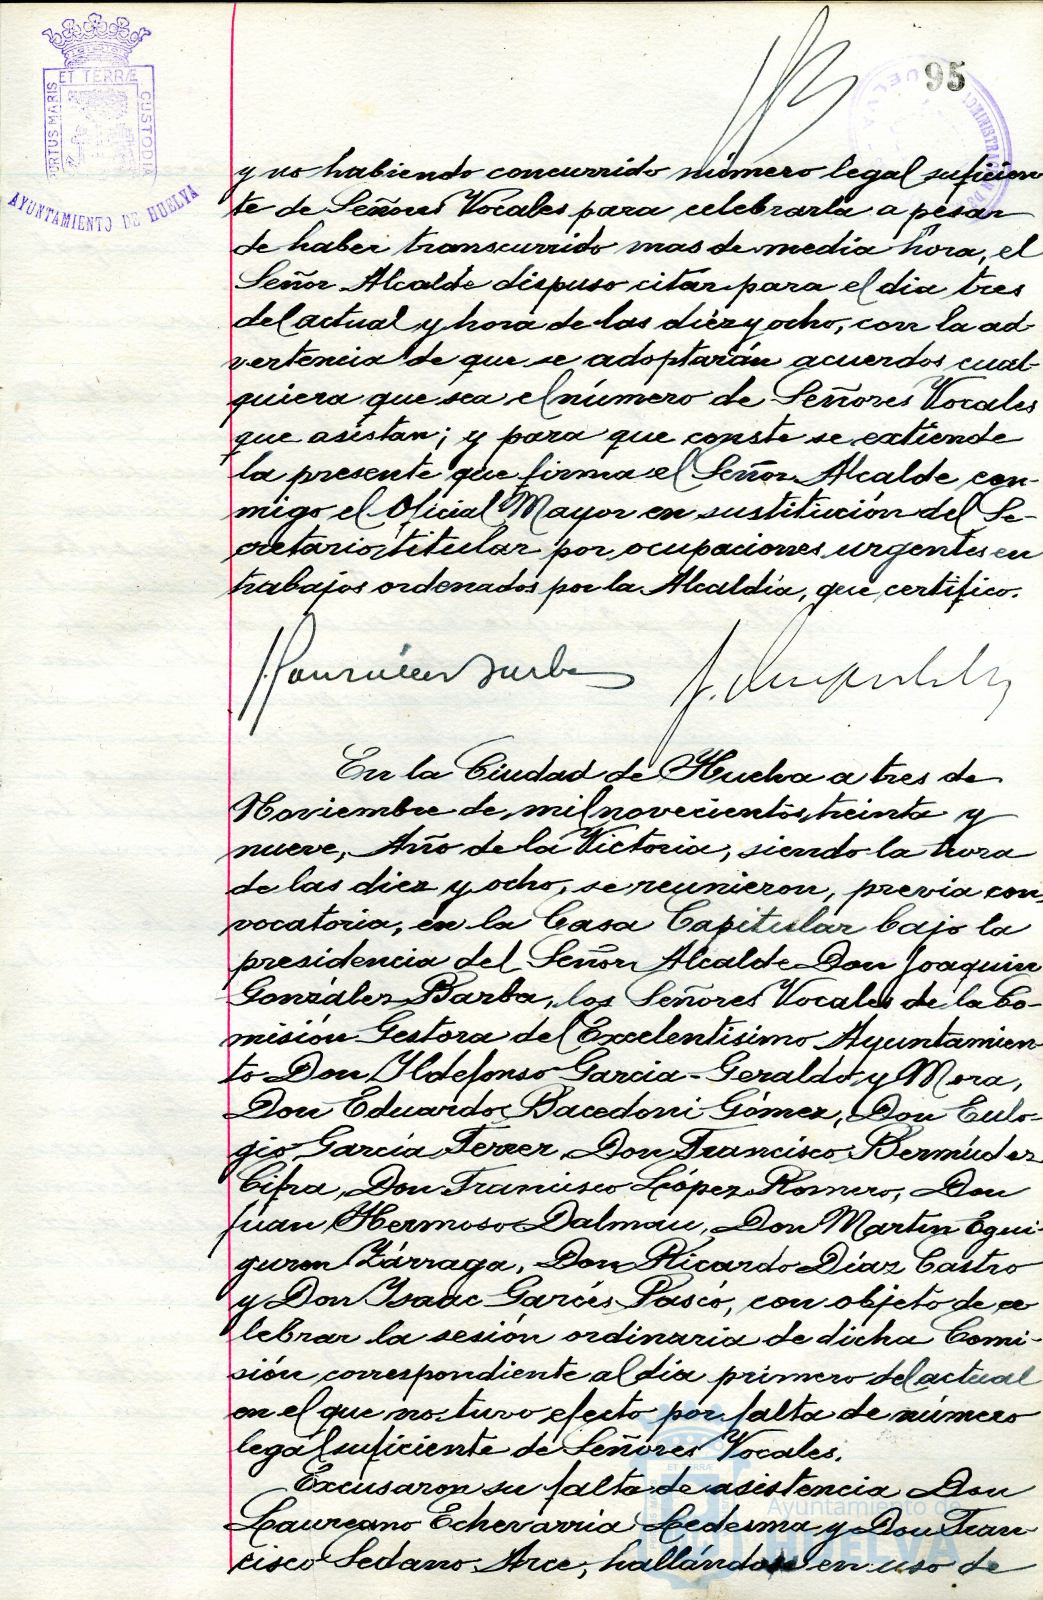 95
ET TERRÆ
PORTUS MARIS
CUSTODIA
AYUNTAMIENTO DE HUELVA
HUELVA
ADMINISTRACION DE
y no habiendo concurrido número legal suficien
te de Señores Vocales para celebrarla a pesar
de haber transcurrido mas de media hora, el
Señor Alcalde dispuso citar para el dia tres
del actual y hora de las diez y ocho, con la ad-
vertencia de que se adoptarán acuerdos cual-
quiera que sea el número de Señores Vocales
que asistan; y para que conste se extiende
la presente que firma el Señor Alcalde con-
migo el Oficial Mayor en sustitución del Se-
cretario titular por ocupaciones urgentes en
trabajos ordenados por la Alcaldía, que certifico.
J. González Barba
En la Ciudad de Huelva a tres de
Noviembre de mil novecientos treinta y
nueve, Año de la Victoria, siendo la hora
de las diez y ocho, se reunieron, previa con-
vocatoria, en la Casa Capitular bajo la
presidencia del Señor Alcalde Don Joaquin
González Barba, los Señores Vocales de la Co-
misión Gestora del Excelentisimo Ayuntamien
to Don Ildefonso Garcia-Geraldo y Mora,
Don Eduardo Bacedoni Gómez, Don Eulo-
gio García Ferrer, Don Francisco Bermúdez
Cifra, Don Francisco López Romero, Don
Juan Hermoso Dalmau, Don Martin Egui-
guren Zárraga, Don Ricardo Díaz Castro
y Don Isaac Garcés Pascó, con objeto de ce
lebrar la sesión ordinaria de dicha Comi-
sión correspondiente al dia primero del actual
en el que no tuvo efecto por falta de número
legal suficiente de Señores Vocales.
Excusaron su falta de asistencia Don
Laureano Echevarria Ledesma y Don Fran
cisco Sedano Arce, hallándose en uso de
Ayuntamiento de
HUELVA